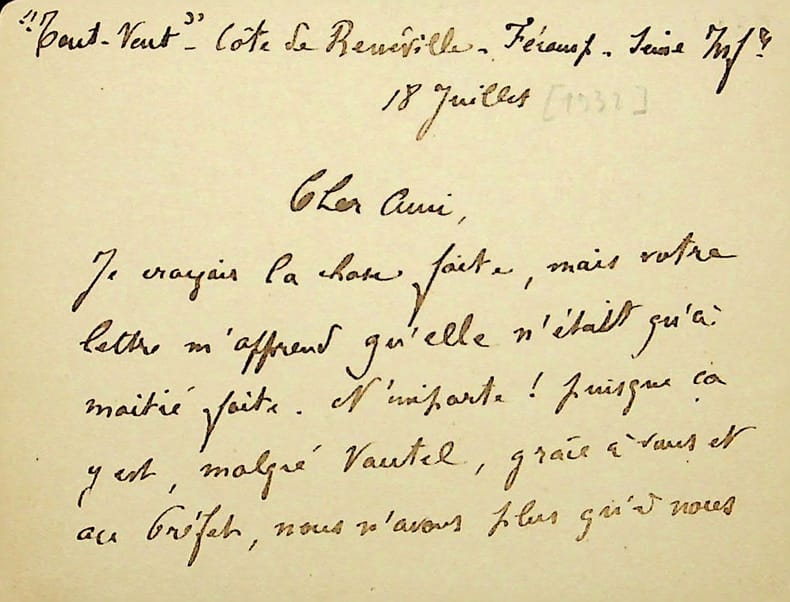 "Tout-Vent" - Côte de Renéville - Fécamp - Seine Infre
18 Juillet [1932]
Cher Ami,
Je croyais la chose faite, mais votre
lettre m'apprend qu'elle n'était qu'à
moitié faite. N'importe ! puisque ça
y est, malgré Vautel, grâce à vous et
au Préfet, nous n'avons plus qu'à nous